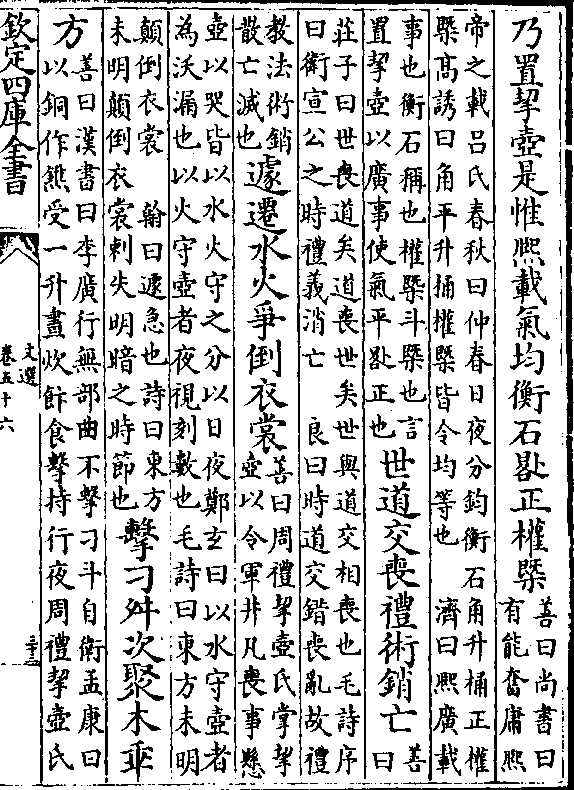 乃置挈壺是惟熈載氣均衡石晷正權槩
善曰尚書曰
有能奮庸熈
帝之載吕氏春秋曰仲春日夜分鈞衡石角升桶正權
槩髙誘曰角平升桶權槩皆令均等也 濟曰熈廣載
事也衡石稱也權槩斗槩也言
置挈壺以廣事使氣平晷正也
世道交喪禮術銷亡
善
曰
莊子曰世喪道矣道喪世矣世與道交相喪也毛詩序
曰衛宣公之時禮義消亡 良曰時道交錯喪亂故禮
教法術銷
散亡滅也
遽遷水火爭倒衣裳
善曰周禮挈壺氏掌挈
壺以令軍井凡喪事懸
壺以哭皆以水火守之分以日夜鄭玄曰以水守壺者
為沃漏也以火守壺者夜視刻數也毛詩曰東方未明
顛倒衣裳 翰曰遽急也詩曰東方
未明顛倒衣裳刺失明暗之時節也
擊刁舛次聚木乖
方
善曰漢書曰李廣行無部曲不擊刁斗自衛孟康曰
以銅作鐎受一升晝炊飰食擊持行夜周禮挈壺氏
欽定四庫全書
文選
卷五十六